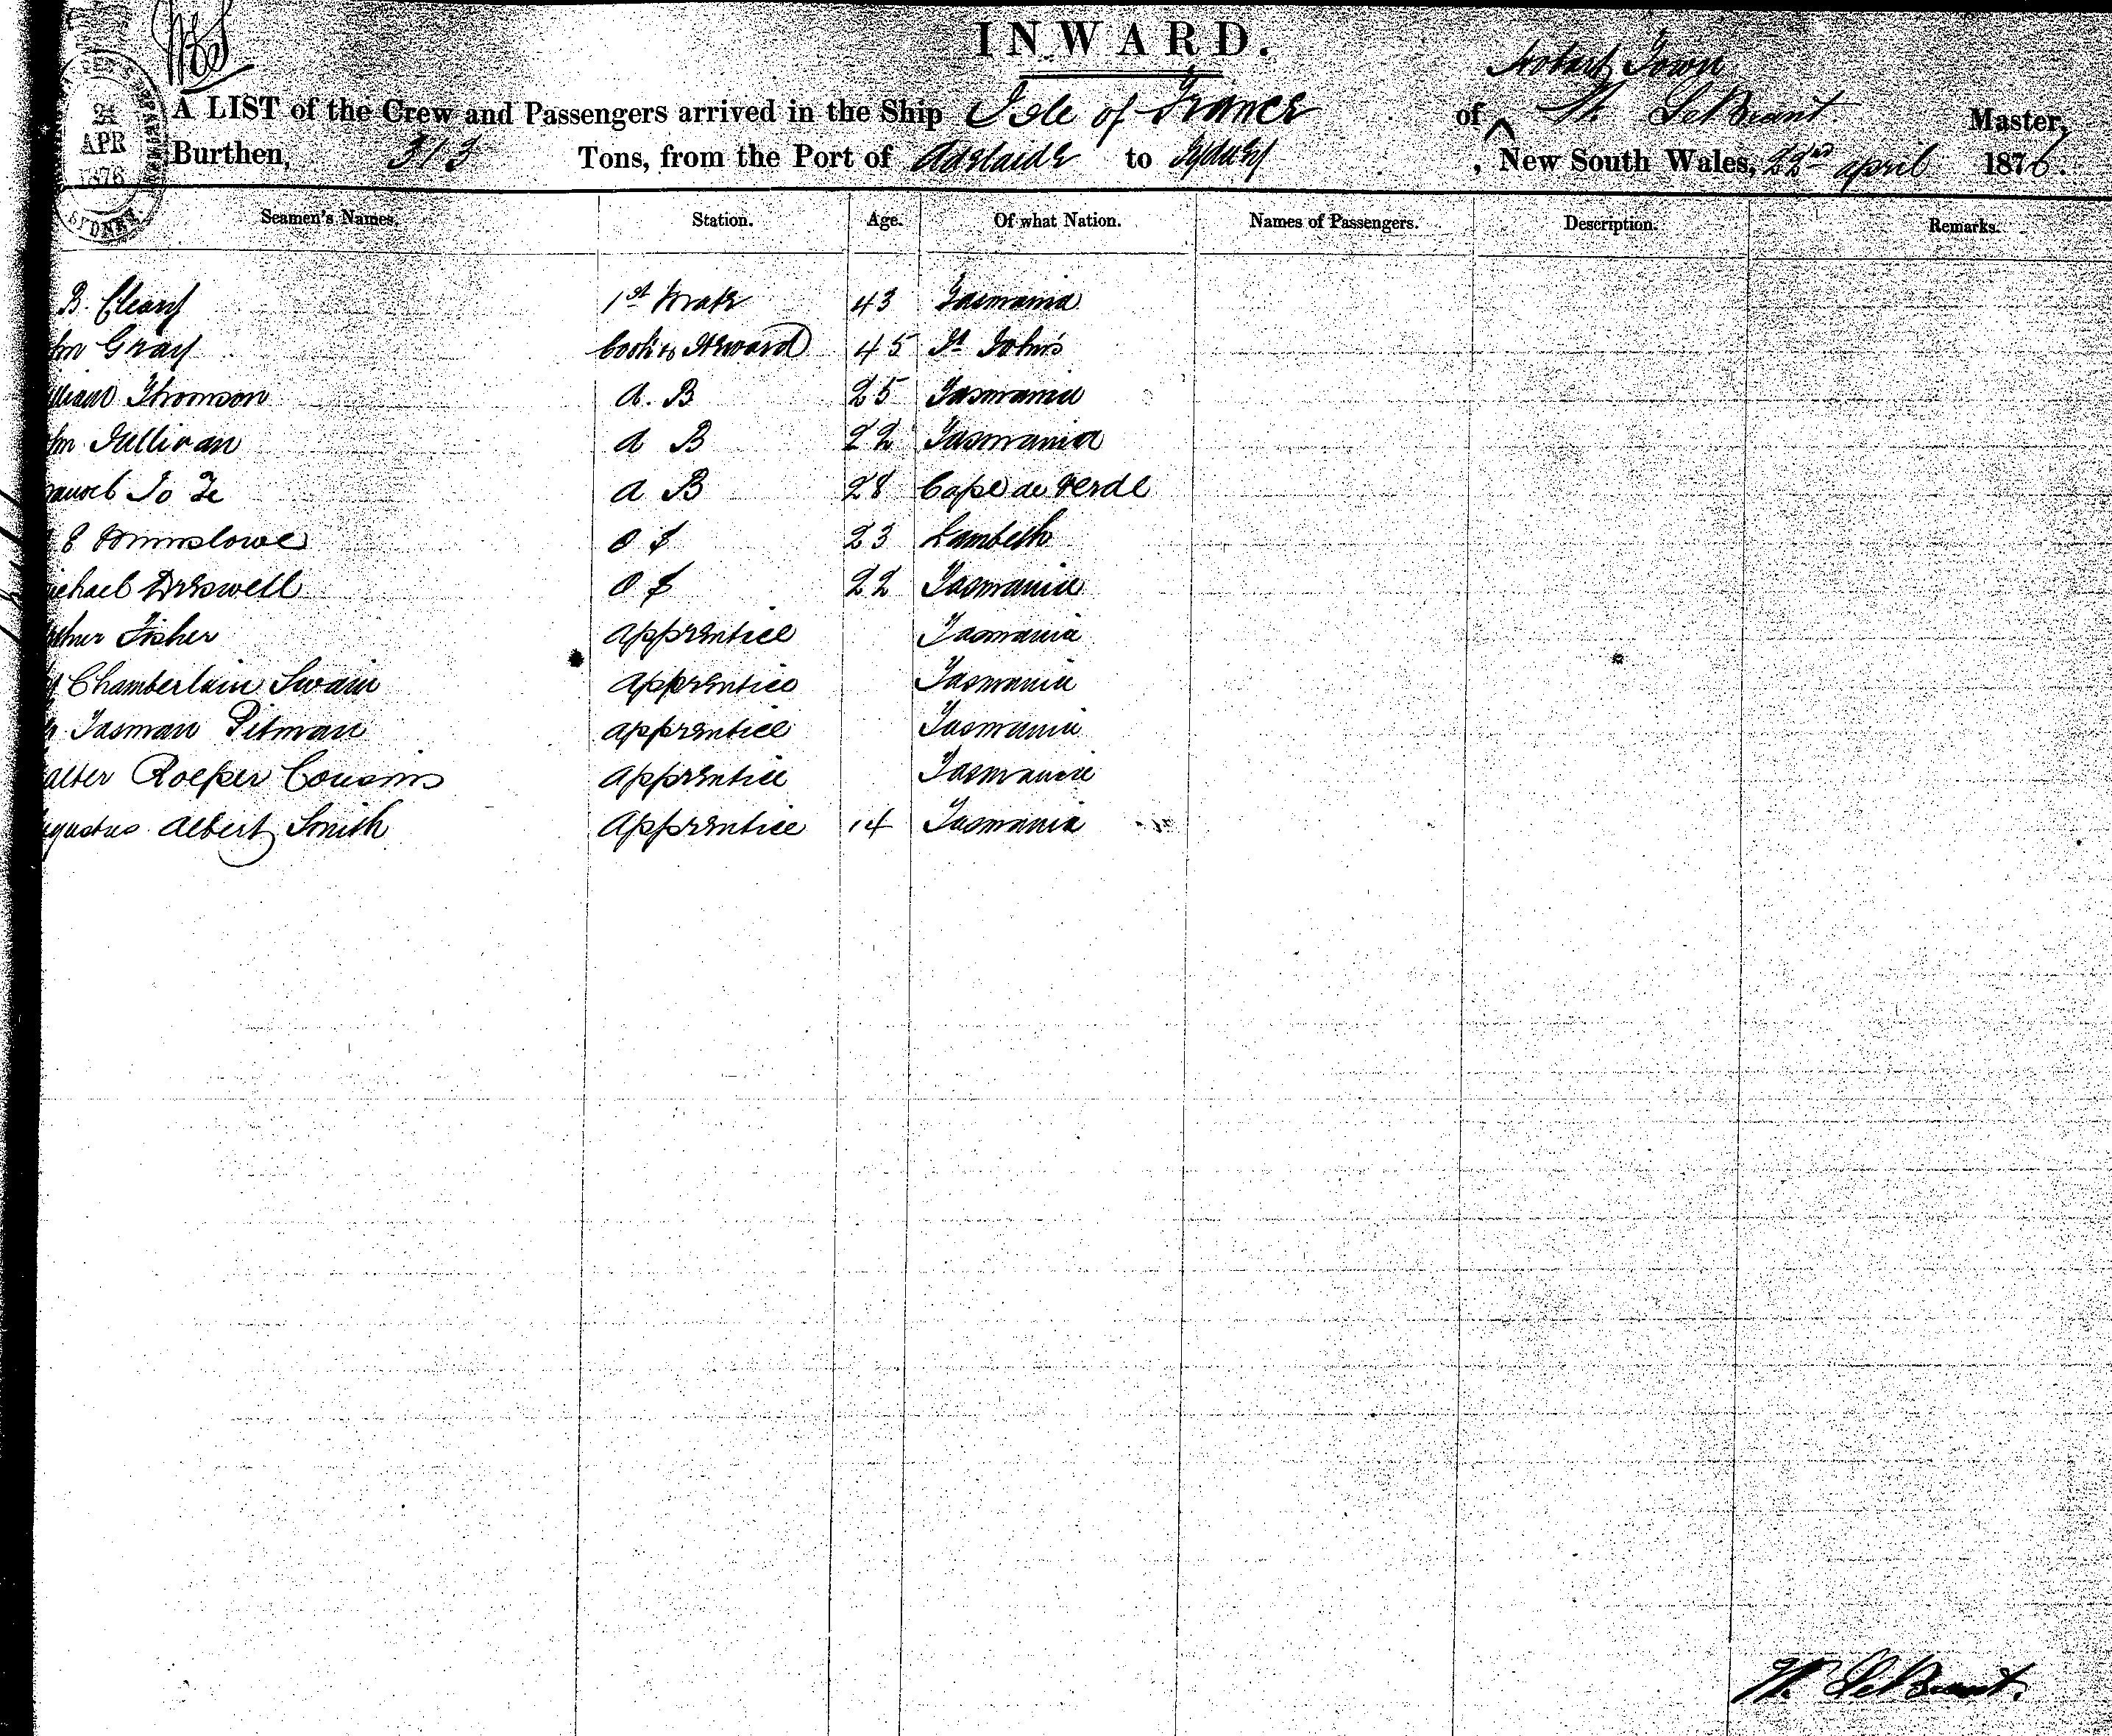 INWARD.
Hobart Town
A LIST of the Crew and Passengers arrived in the Ship Isle of France of Master,
Burthen, 313 Tons, from the Port of Adelaide to Sydney, New South Wales, 22nd april 1876.
24
APR
1876
SYDNEY
Seamen's Names. Station. Age. Of what Nation. Names of Passengers. Description. Remarks.
B. Cleary 1st Mate 43 Tasmania
hn Gray Cook & Steward 45 St Johns
illiam Thomson A. B 25 Tasmania
hn Sullivan A B 22 Tasmania
A B 28 Cape de Verde
E O S 23 Lambeth
ichael O S 22 Tasmania
Fisher apprentice Tasmania
Chamberlain Swain apprentice Tasmania
Tasman Pitman apprentice Tasmania
alter Roeper Cousins apprentice Tasmania
gustus Albert Smith Apprentice 14 Tasmania